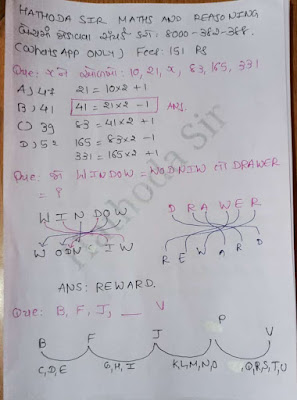 HATHODA SIR MATHS AND REASONING
જોડાવા સંપર્ક કરો : 8000-362-368.
(WhatsApp ONLY) Fees: 151 Rs
Que: x ને શોધો : 10, 21, x, 83, 165, 331
A) 47 21 = 10×2 +1
B) 41 41 = 21×2 -1 ANS.
C) 39 83 = 41×2 +1
D) 52 165 = 83×2 -1
331 = 165×2 +1
Que: જો WINDOW = WODNIW તો DRAWER
= ?
W I N D O W D R A W E R
W O D N I W R E W A R D
ANS: REWARD.
Que: B, F, J, __ V
B F J P V
C, D, E G, H, I K, L, M, N, O Q, R, S, T, U
Hathoda Sir